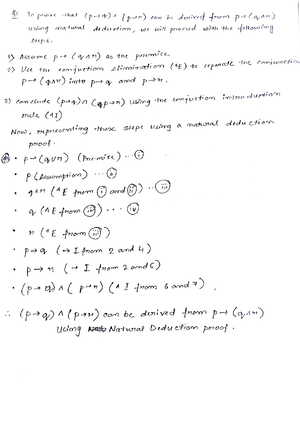 Q) To prove that (p→q) ∧ (p→r) can be derived from p→(q∧r)
using natural deduction, we will proceed with the following
steps.
1) Assume p→ (q∧r) as the premise.
2) Use the conjuction elimination (∧E) to separate the conjunction
p→(q∧r) into p→q and p→r.
3) conclude (p→q) ∧ (p→r) using the conjuction introduction
rule (∧I)
Now, representing these steps using a natural deduction
proof.
• p→(q∪r) (Premise) .. (i)
• p (Assumption) .... (ii)
• q∧r (∧E from (i) and (ii)) .. (iii)
• q (∧E from (iii)) ... (iv)
• r (∧E from (iii))
• p→q (→I from 2 and 4)
• p→r (→I from 2 and 5)
• (p→q) ∧ (p→r) (∧I from 6 and 7).
∴ (p→q) ∧ (p→r) can be derived from p→(q∧r)
Using Natural Deduction proof.